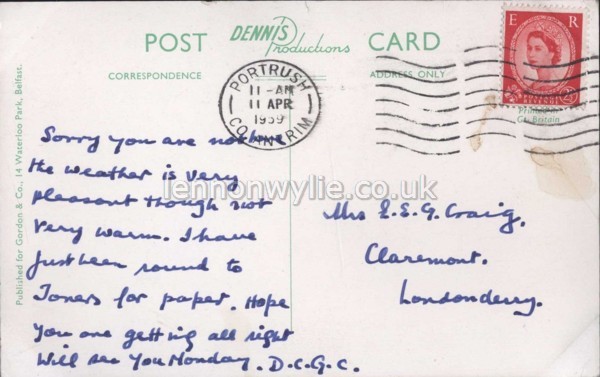 POST DENNIS Productions CARD
CORRESPONDENCE ADDRESS ONLY
E R
PORTRUSH
11-AM
11 APR
1959
CO. ANTRIM
Printed in
Gt. Britain
Published for Gordon & Co., 14 Waterloo Park, Belfast.
Sorry you are not here
the weather is very
pleasant though not
very warm. I have
just been round to
Joners for paper. Hope
you are getting all right
Will see you Monday. D.C.G.C.
Mrs E.S.G. Craig.
Claremont.
Londonderry.
lennonwylie.co.uk